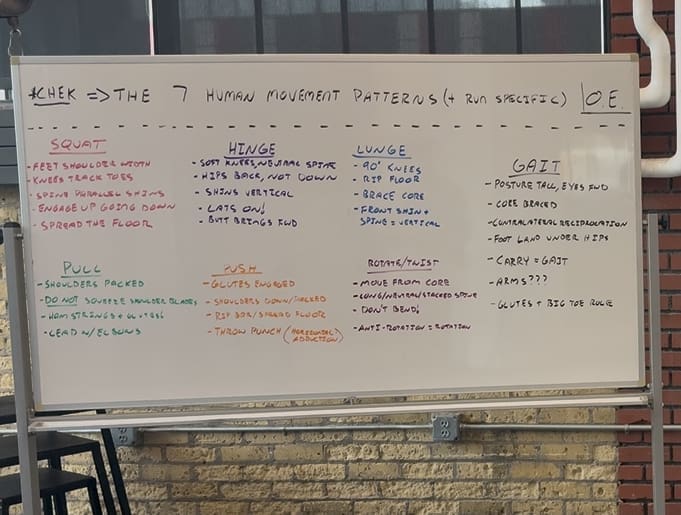 *CHEK => THE 7 HUMAN MOVEMENT PATTERNS (+ RUN SPECIFIC) O.E.
SQUAT
- FEET SHOULDER WIDTH
- KNEES TRACK TOES
- SPINE PARALLEL SHINS
- ENGAGE UP GOING DOWN
- SPREAD THE FLOOR
HINGE
- SOFT KNEES, NEUTRAL SPINE
- HIPS BACK, NOT DOWN
- SHINS VERTICAL
- LATS ON!
- BUTT BRINGS FWD
LUNGE
- 90° KNEES
- RIP FLOOR
- BRACE CORE
- FRONT SHIN +
SPINE = VERTICAL
GAIT
- POSTURE TALL, EYES FWD
- CORE BRACED
- CONTRALATERAL RECIPROCATION
- FOOT LAND UNDER HIPS
- CARRY = GAIT
- ARMS???
- GLUTES + BIG TOE
PULL
- SHOULDERS PACKED
- DO NOT SQUEEZE SHOULDER BLADES
- HAMSTRINGS + GLUTES!
- LEAD W/ ELBOWS
PUSH
- GLUTES ENGAGED
- SHOULDERS DOWN/PACKED
- RIP BAR/SPREAD FLOOR
- THROW PUNCH (HORIZONTAL ADDUCTION)
ROTATE/TWIST
- MOVE FROM CORE
- LONG/NEUTRAL/STACKED SPINE
- DON'T BEND!
- ANTI-ROTATION = ROTATION